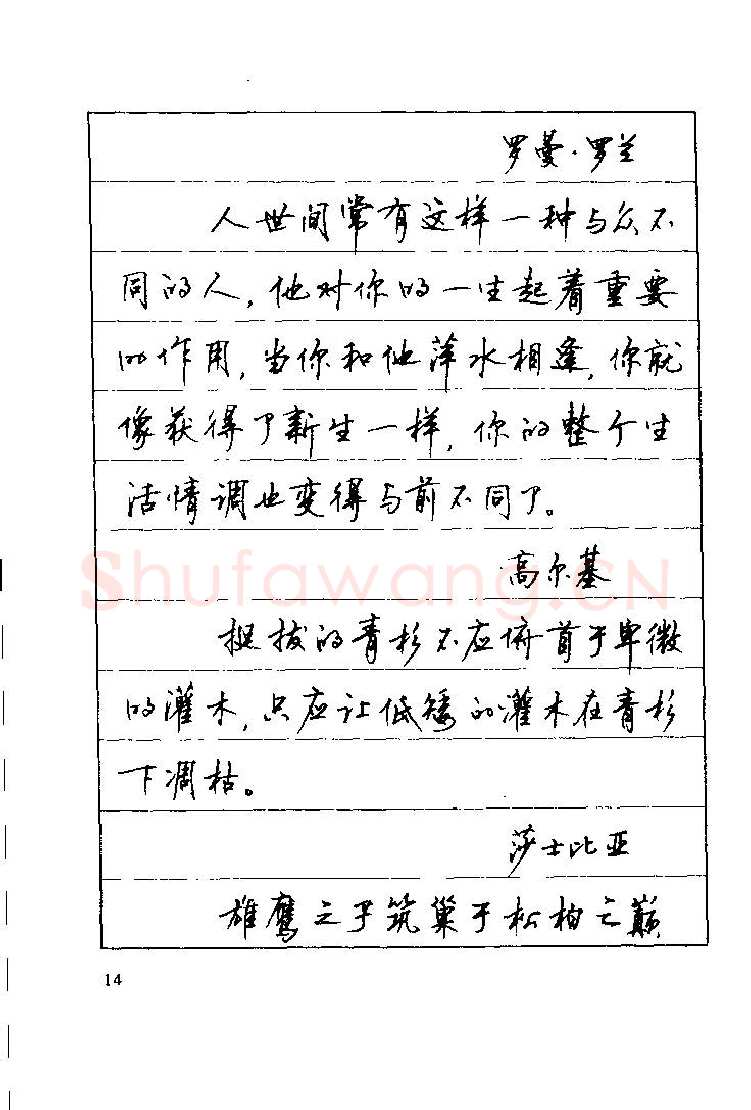 罗曼·罗兰
人世间常有这样一种与众不
同的人，他对你的一生起着重要
的作用，当你和他萍水相逢，你就
像获得了新生一样，你的整个生
活情调也变得与前不同了。
高尔基
Shufawang.CN
挺拔的青杉不应俯首于卑微
的灌木，只应让低矮的灌木在青杉
下凋枯。
莎士比亚
雄鹰之子筑巢于松柏之巅
14